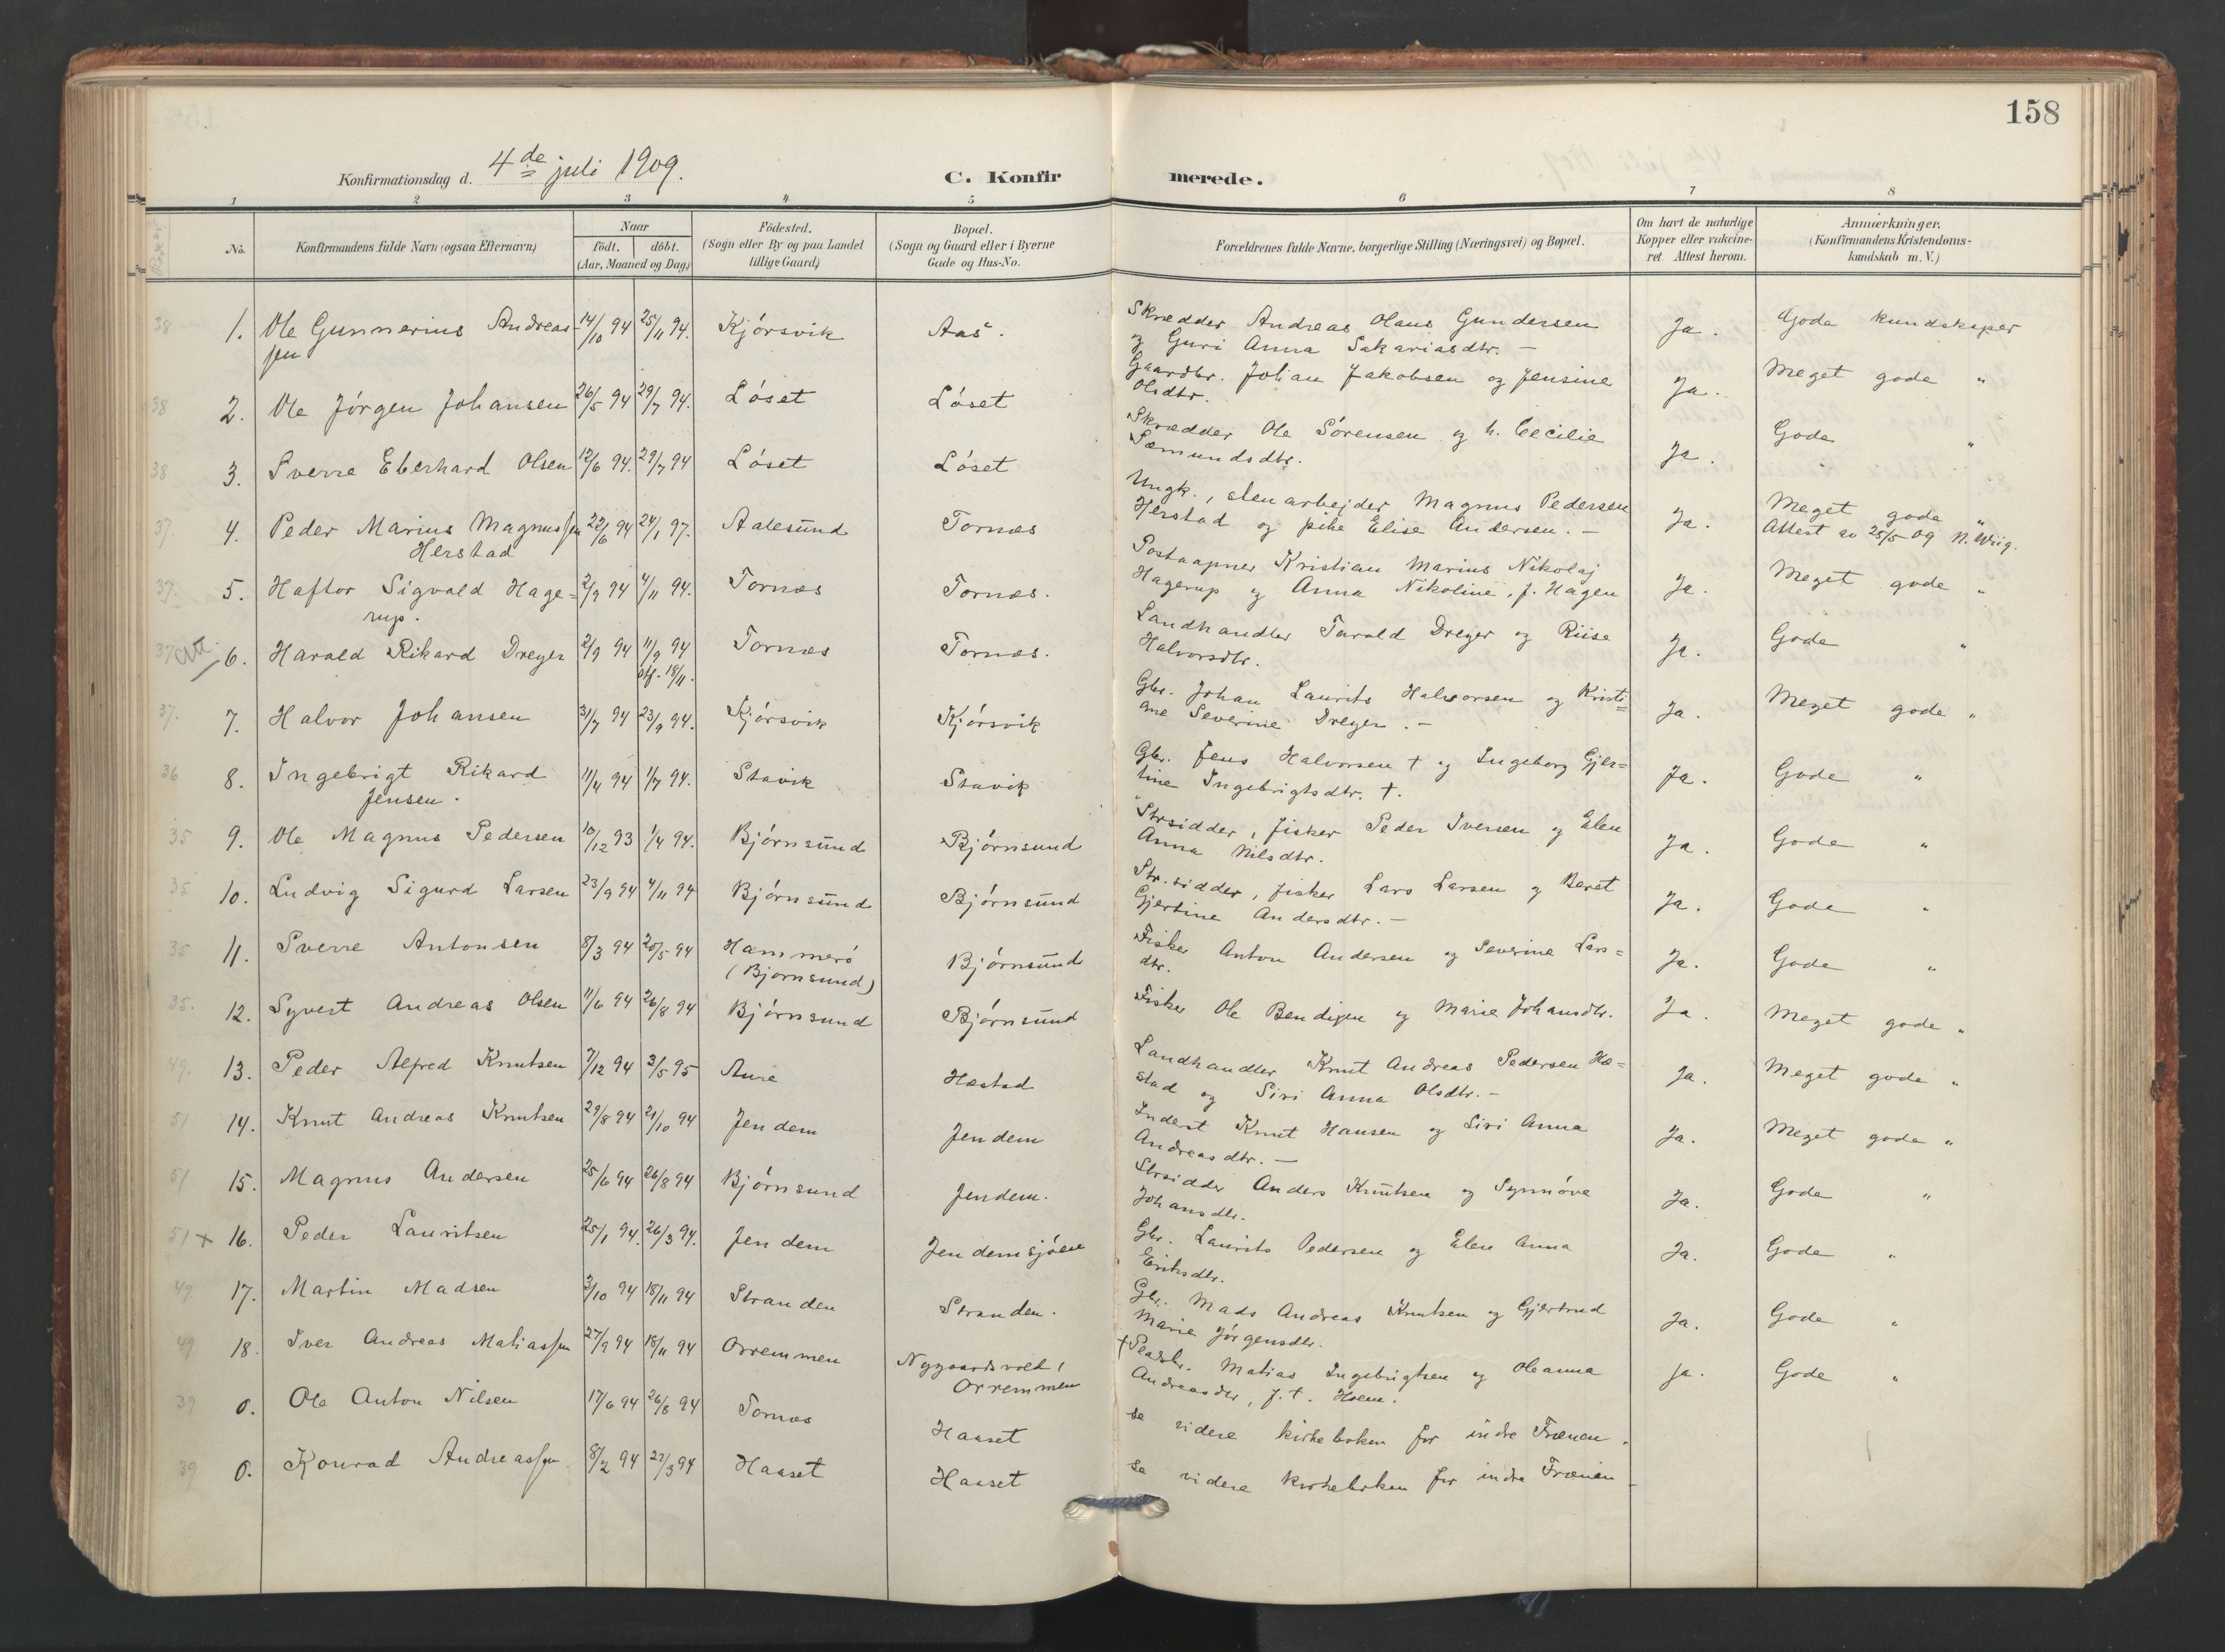 158
Konfirmationsdag d. 4de juli 1909. C. Konfirmerede.
1 2 3 4 5 6 7 8
No. Konfirmandens fulde Navn (ogsaa Efternavn) Naar født. døbt. (Aar, Maaned og Dag) Fødested. (Sogn eller By og paa Landet tillige Gaard) Bopæl. (Sogn og Gaard eller i Byerne Gade og Hus-No. Forældrenes fulde Navne, borgerlige Stilling (Næringsvei) og Bopæl. Om havt de naturlige Kopper eller vakcineret. Attest herom. Anmærkninger. (Konfirmandens Kristendomskundskab m. V.)
38 1. Ole Gunnerius Andreas- 14/10 94 25/11 94. Kjörsvik Aas. Skrædder Andreas Olaus Gundersen Ja. Gode kundskaper
sen og Guri Anna Sakariasdtr. —
38 2. Ole Jörgen Johansen 26/5 94 29/7 94. Löset Löset Gaardbr. Johan Jakobsen og Jensine Ja. Meget gode "
Olsdtr.
38 3. Sverre Eberhard Olsen 12/6 94. 29/7 94 Löset Löset Skrædder Ole Sörensen og h. Cecilie Ja. Gode "
Sæmundsdtr.
37. 4. Peder Marius Magnussen 22/6 94 24/1 97. Aalesund Tornæs Ungk., stenarbejder Magnus Pedersen Ja. Meget gode "
Herstad Herstad og pike Elise Andersen. — Attest av 25/5 09 N.
37. 5. Haftor Sigvald Hage= 2/9 94 4/11 94. Tornæs Tornæs. Postaapner Kristian Marius Nikolaj Ja. Meget gode "
rup. Hagerup og Anna Nikoline, f. Hagen
37 att 6. Harald Rikard Dreyer 2/9 94 11/9 94 Tornæs Tornæs. Landhandler Tarald Dreyer og Riise Ja. Gode "
stf. 18/11. Halvorsdtr.
37. 7. Halvor Johansen 31/7 94 23/9 94. Kjörsvik Kjörsvik Gbr. Johan Laurits Halvorsen og Kristi= Ja. Meget gode "
ane Severine Dreyer. —
36 8. Ingebrigt Rikard 11/4 94 1/7 94. Stavik Stavik Gbr. Jens Halvorsen † og Ingeborg Gjer= Ja. Gode "
Jensen. tine Ingebrigtsdtr. †.
35 9. Ole Magnus Pedersen 10/12 93 1/4 94. Björnsund Björnsund Strsidder, fisker Peder Iversen og Elen Ja. Gode "
Anna Nilsdtr.
35 10. Ludvig Sigurd Larsen 23/9 94 4/11 94 Björnsund Björnsund Str.sidder, fisker Lars Larsen og Beret Ja. Gode "
Gjertine Andersdtr. —
35 11. Sverre Antonsen 8/3 94 20/5 94 Hammerö Björnsund Fisker Anton Andersen og Severine Lars= Ja. Gode "
(Björnsund) dtr.
35. 12. Syvert Andreas Olsen 11/6 94 26/8 94 Björnsund Björnsund Fisker Ole Bendixen og Marie Johansdtr. Ja. Meget gode "
49. 13. Peder Alfred Knutsen 7/12 94 3/5 95 Aure Hæstad Landhandler Knut Andreas Pedersen Hæ= Ja. Meget gode "
stad og Siri Anna Olsdtr. —
51 14. Knut Andreas Knutsen 29/8 94 21/10 94 Jendem Jendem Inderst Knut Hansen og Siri Anna Ja. Meget gode "
Andreasdtr. —
51 15. Magnus Andersen 25/6 94 26/8 94 Björnsund Jendem. Strsidder Anders Knutsen og Synnöve Ja. Gode "
Johansdtr.
51 + 16. Peder Lauritsen 25/1 94. 26/3 94. Jendem Jendemsjöen Gbr. Laurits Pedersen og Elen Anna Ja. Gode "
Eriksdtr.
49 17. Martin Madsen 3/10 94 18/11 94 Stranden Stranden. Gbr. Mads Andreas Knutsen og Gjertrud Ja. Gode "
Marie Jörgensdtr.
49 18. Iver Andreas Matiassen 27/9 94 18/11 94 Orremmen Nygaardsvold, † Matias Ingebrigtsen og Oleanna Ja. Gode "
Orremmen Andreasdtr, f. t. Hoem.
39 0. Ole Anton Nilsen 17/6 94 26/8 94 Tornæs Haaset se videre kirkeboken for indre Frænen.
39 0. Konrad Andreassen 8/2 94 27/3 94 Haaset Haaset se videre kirkeboken for indre Frænen